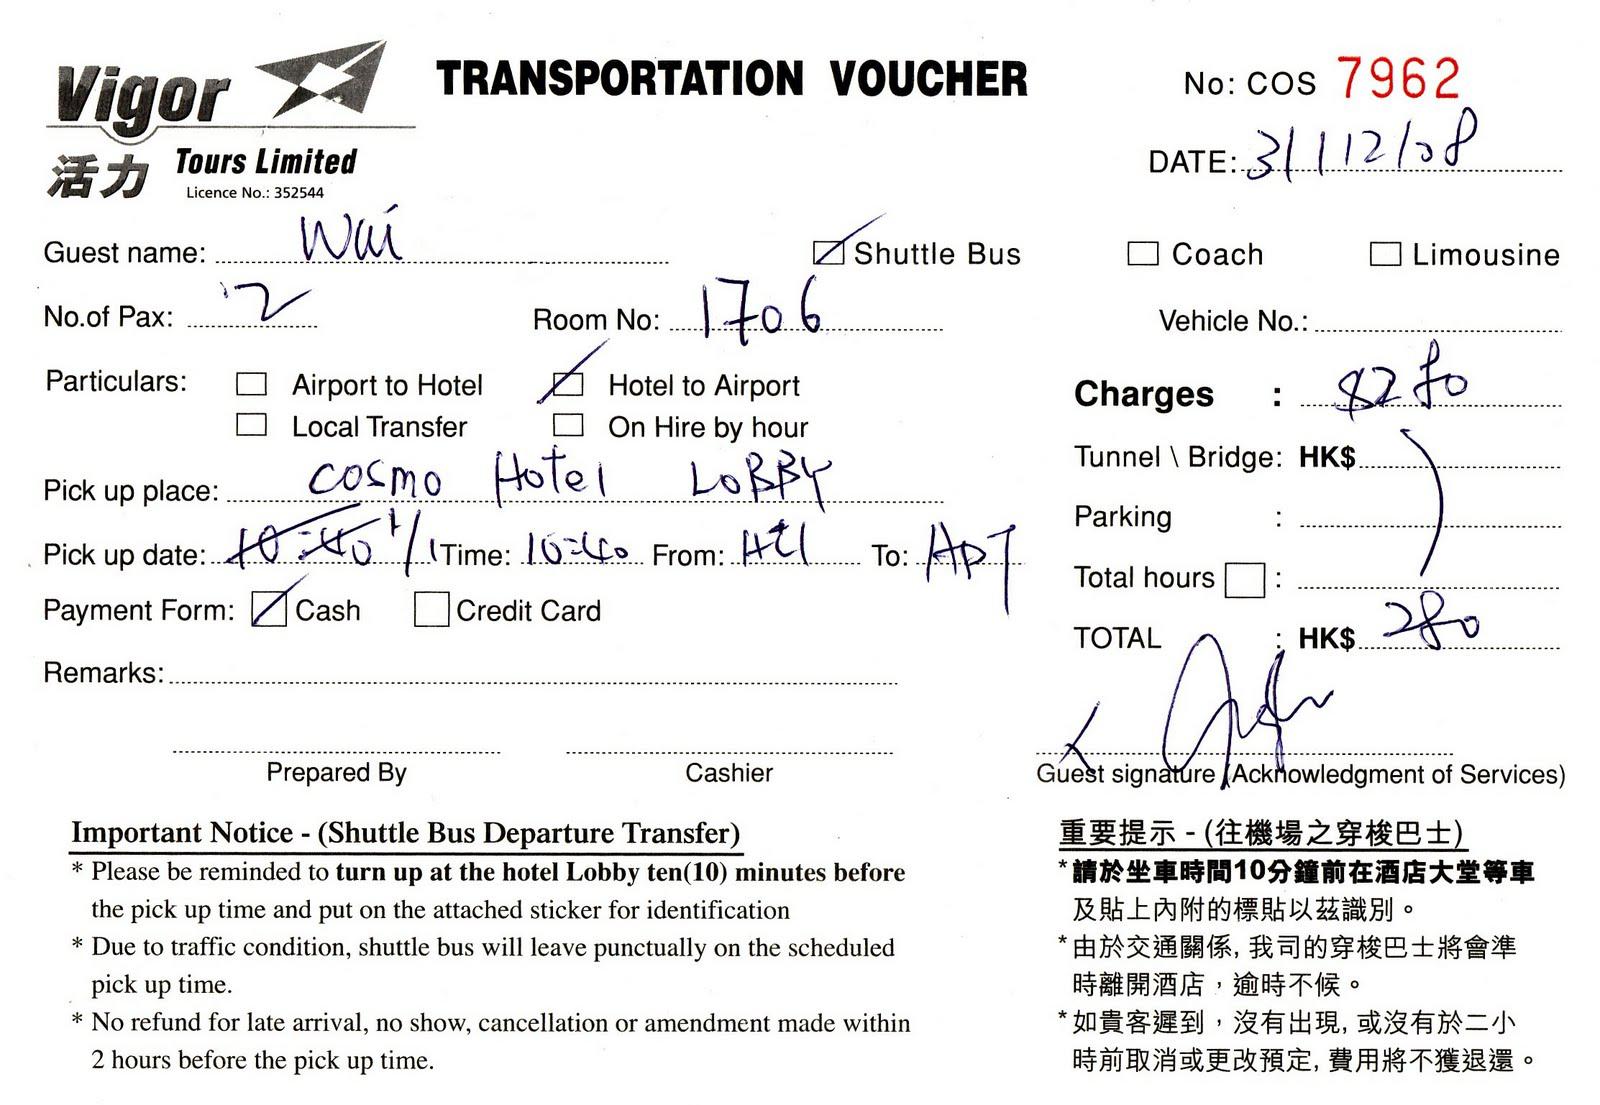 Vigor
TRANSPORTATION VOUCHER
No: COS 7962
活力 Tours Limited
Licence No.: 352544
DATE: 31/12/08
Guest name: Wai
Shuttle Bus
Coach
Limousine
No.of Pax: 2
Room No: 1706
Vehicle No.:
Particulars:
Airport to Hotel
Hotel to Airport
Local Transfer
On Hire by hour
Charges : $280
Tunnel \ Bridge: HK$
Parking :
Total hours :
TOTAL : HK$ 280
Pick up place: COSMO HOTEL LOBBY
Pick up date: 10:40 1/1 Time: 10:40 From: Htl To: APT
Payment Form: Cash Credit Card
Remarks:
Prepared By
Cashier
Guest signature (Acknowledgment of Services)
Important Notice - (Shuttle Bus Departure Transfer)
* Please be reminded to turn up at the hotel Lobby ten(10) minutes before
the pick up time and put on the attached sticker for identification
* Due to traffic condition, shuttle bus will leave punctually on the scheduled
pick up time.
* No refund for late arrival, no show, cancellation or amendment made within
2 hours before the pick up time.
重要提示 - (往機場之穿梭巴士)
*請於坐車時間10分鐘前在酒店大堂等車
及貼上內附的標貼以茲識別。
*由於交通關係, 我司的穿梭巴士將會準
時離開酒店，逾時不候。
*如貴客遲到，沒有出現, 或沒有於二小
時前取消或更改預定, 費用將不獲退還。